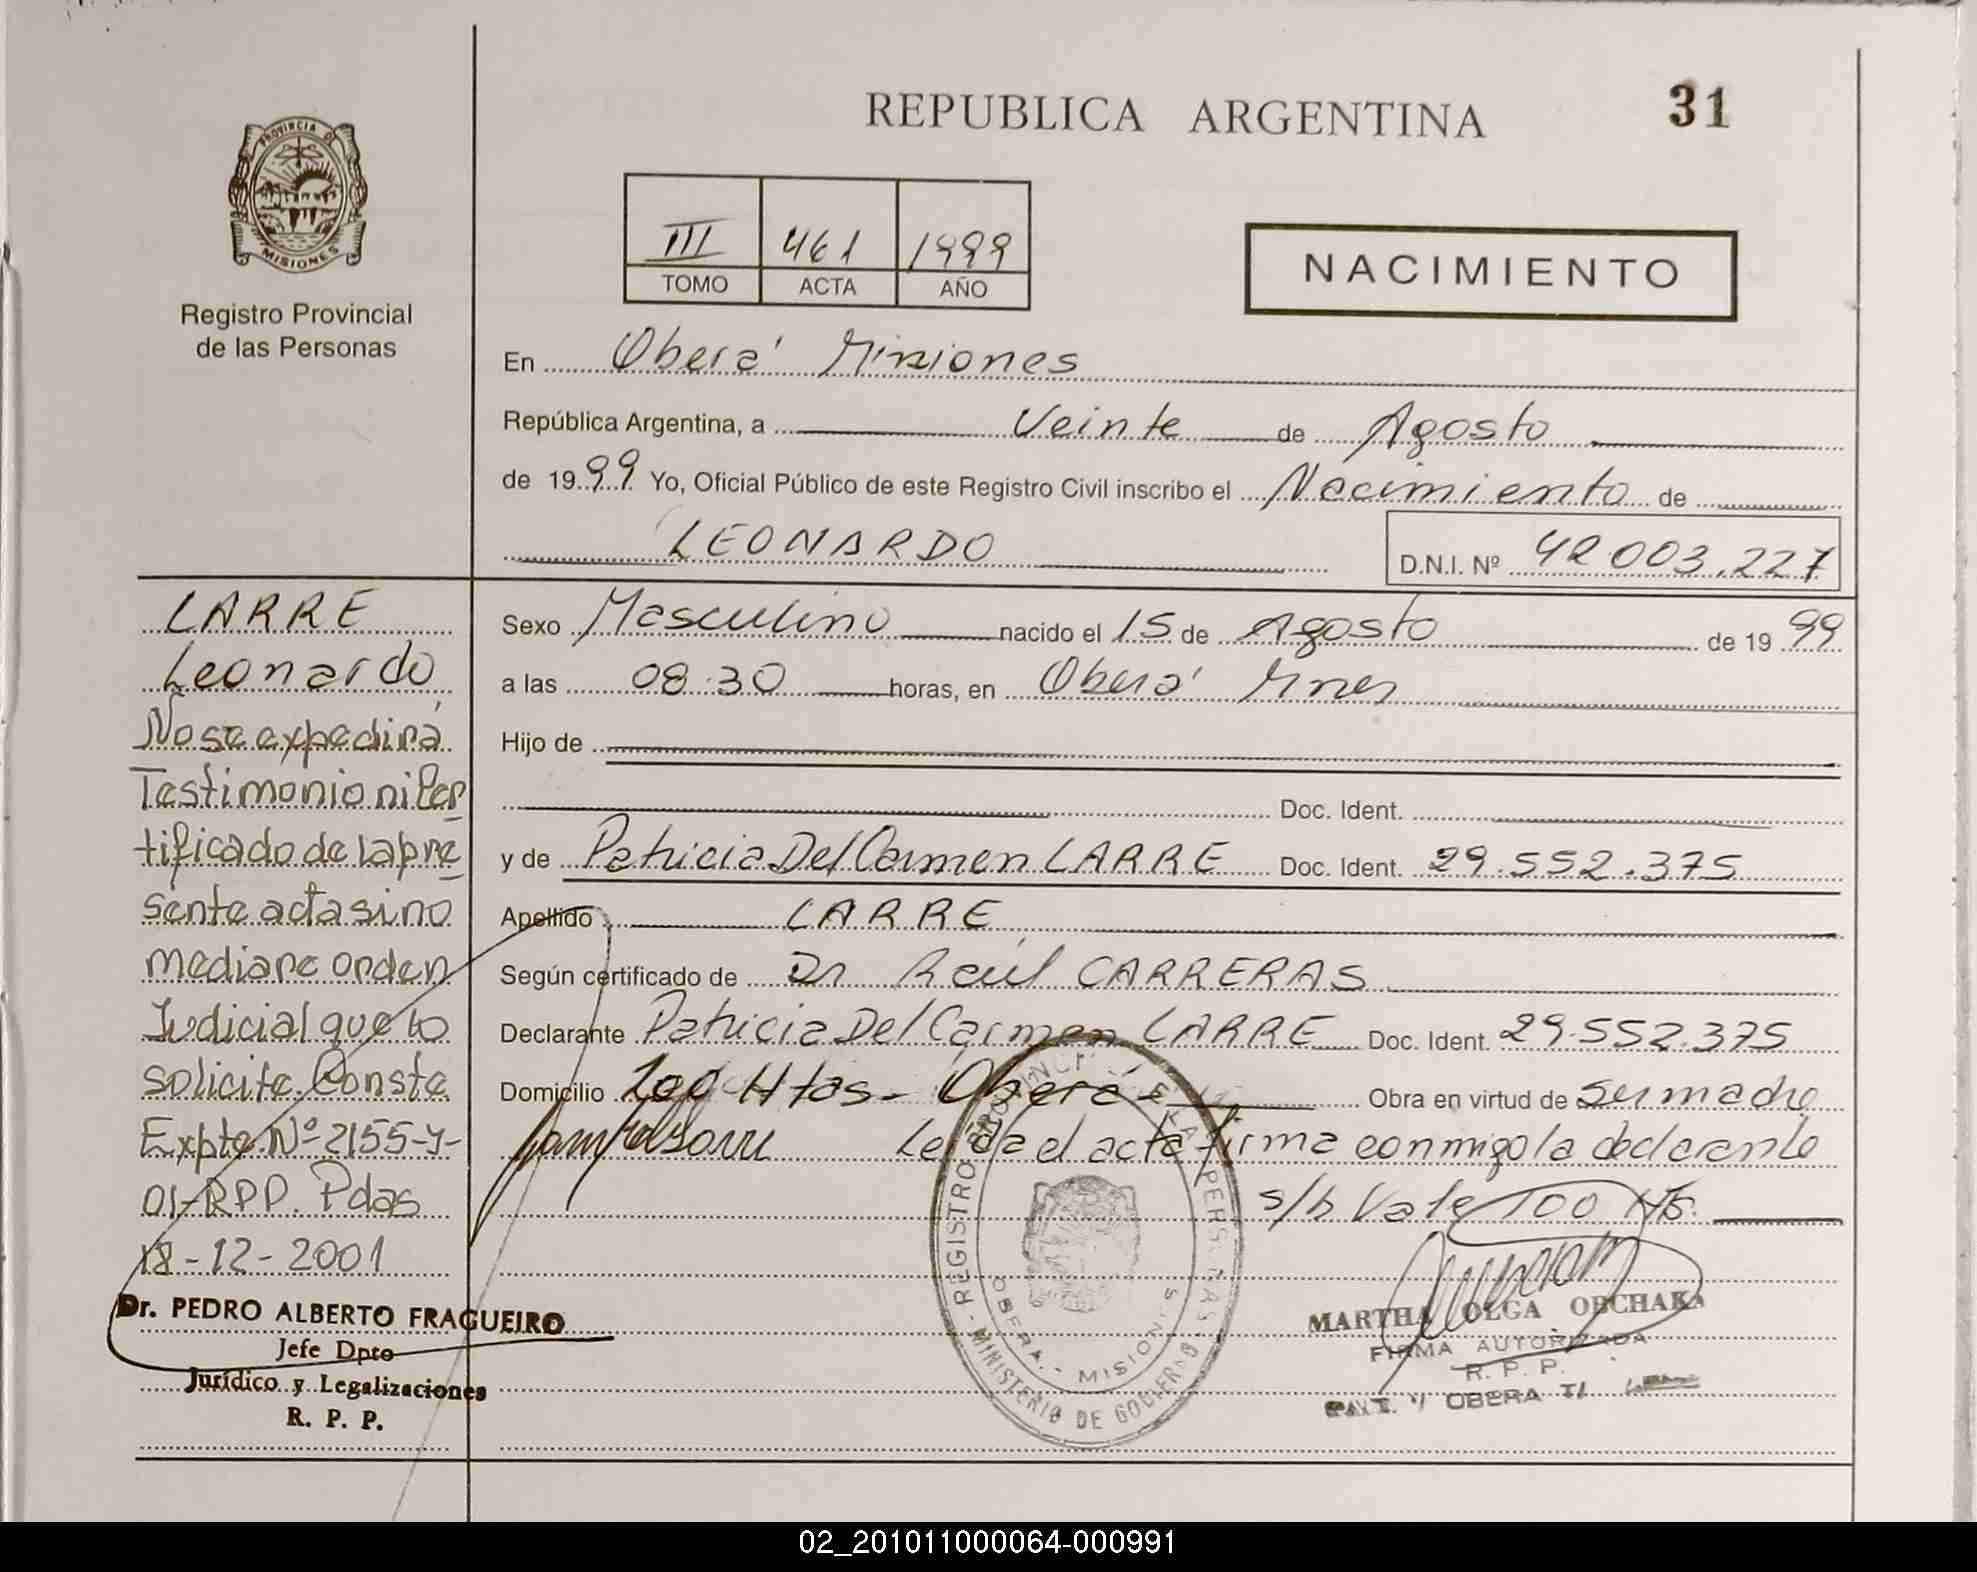 REPUBLICA ARGENTINA
31
PROVINCIA DE
MISIONES
Registro Provincial
de las Personas
III 461 1999
TOMO ACTA AÑO
NACIMIENTO
En Oberá Misiones
República Argentina, a Veinte de Agosto
de 1999 Yo, Oficial Público de este Registro Civil inscribo el Nacimiento de
LEONARDO
D.N.I. Nº 42.003.227
Sexo Masculino nacido el 15 de Agosto de 1999
a las 08.30 horas, en Oberá Mnes
Hijo de
Doc. Ident.
y de Patricia Del Carmen LARRE Doc. Ident. 29.552.375
Apellido LARRE
Según certificado de Dr Raúl CARRERAS
Declarante Patricia Del Carmen LARRE Doc. Ident. 29.552.375
Domicilio 100 Htas - Oberá - Obra en virtud de ser madre
Leída el acta firma conmigo la declarante
s/b Vale 100 Hts.
LARRE
Leonardo
No se expedirá
Testimonio ni Cer
tificado de la pre
sente acta sino
mediare orden
Judicial que lo
solicite. Conste
Expte. Nº 2155-Y-
01-RPP. Pdas
18-12-2001
Dr. PEDRO ALBERTO FRAGUEIRO
Jefe Dpto
Jurídico y Legalizaciones
R. P. P.
REGISTRO PROVINCIAL DE LAS PERSONAS - MINISTERIO DE GOBIERNO
OBERA - MISIONES
MARTHA OLGA OBCHAKA
FIRMA AUTORIZADA
R. P. P.
OBERA T/
02_201011000064-000991